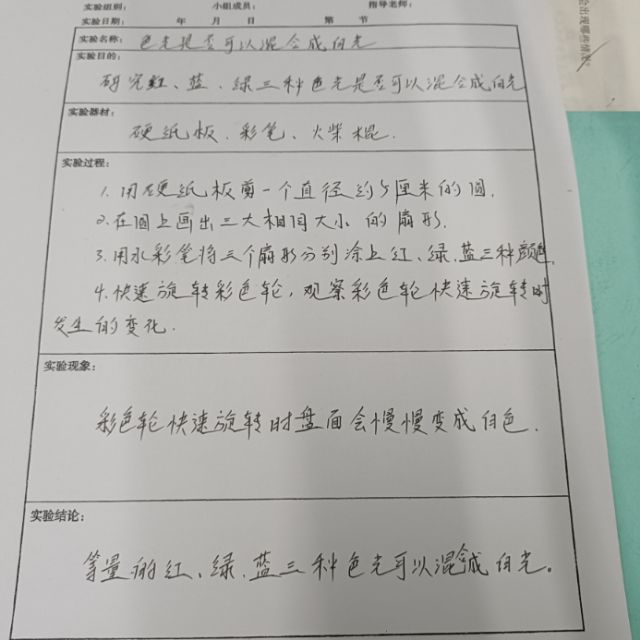 实验组别： 小组成员： 指导老师：
实验日期： 年 月 日 第 节
实验名称： 色光是否可以混合成白光
实验目的：
研究红、蓝、绿三种色光是否可以混合成白光
实验器材：
硬纸板、彩笔、火柴棍.
实验过程：
1. 用硬纸板剪一个直径约5厘米的圆.
2. 在圆上画出三大相同大小的扇形.
3. 用水彩笔将三个扇形分别涂上红、绿、蓝三种颜色.
4. 快速旋转彩色轮，观察彩色轮快速旋转时
发生的变化.
实验现象：
彩色轮快速旋转时盘面会慢慢变成白色.
实验结论：
等量的红、绿、蓝三种色光可以混合成白光。
会出现哪些情形?